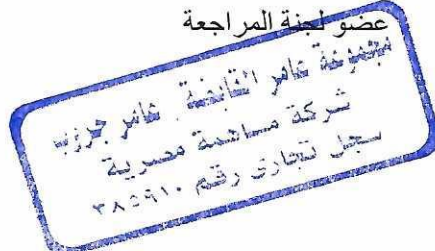 عضو لجنة المراجعة
مجموعة عامر القابضة . عامر جروب
شركة مساهمة مصرية
سجل تجارى رقم ٣٨٥٩١٠